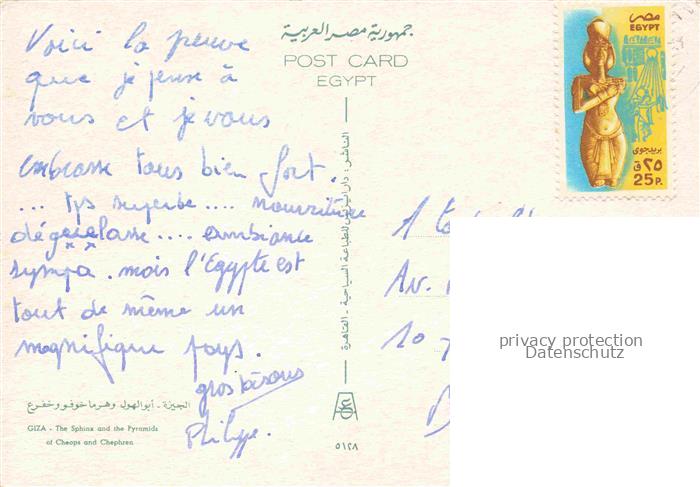 جمهورية مصر العربية
POST CARD
EGYPT
Voici la preuve
que je pense à
vous et je vous
embrasse tous bien fort.
... tps superbe .... nourriture
dégueulasse .... ambiance
sympa. mais l'Egypte est
tout de même un
magnifique pays.
gros bisous
Philippe.
الجيزة - أبو الهول وهرما خوفو وخفرع
GIZA - The Sphinx and the Pyramids
of Cheops and Chephren
٥١٢٨
مصر
EGYPT
بريد جوى
٢٥ ق
25 P.
Av.
10
privacy protection
Datenschutz